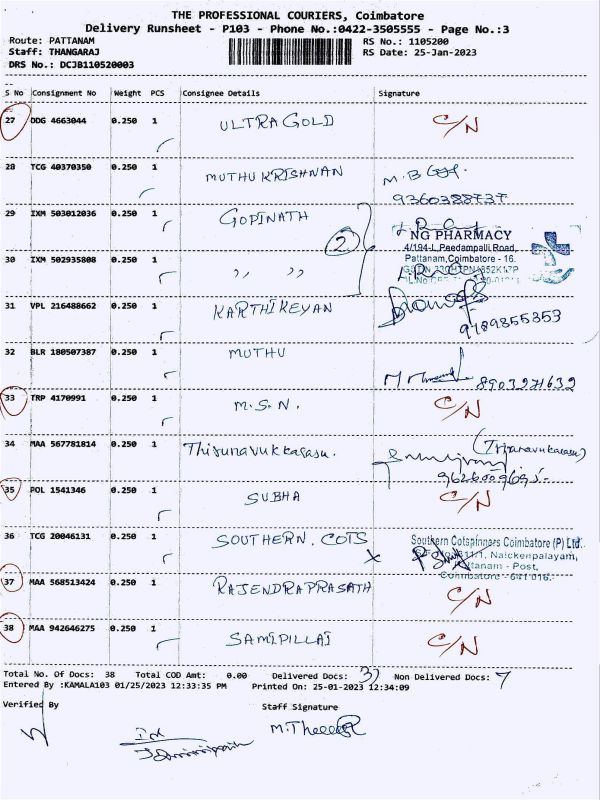 THE PROFESSIONAL COURIERS, Coimbatore
Delivery Runsheet - P103 - Phone No.:0422-3505555 - Page No.:3
Route: PATTANAM RS No.: 1105200
Staff: THANGARAJ RS Date: 25-Jan-2023
DRS No.: DCJB110520003
S No Consignment No Weight PCS Consignee Details Signature
27 DDG 4663044 0.250 1 ULTRA GOLD C/N
28 TCG 40370350 0.250 1 MUTHU KRISHNAN M.B
9360388737
29 IXM 503012036 0.250 1 GOPINATH
2
NG PHARMACY
4/194-I, Peedampalli Road,
Pattanam, Coimbatore - 16.
30 IXM 502935808 0.250 1 ,, ,,
31 VPL 216488662 0.250 1 KARTHIKEYAN
9789355353
32 BLR 180507387 0.250 1 MUTHU
8903271632
33 TRP 4170991 0.250 1 M.S.N. C/N
34 MAA 567781814 0.250 1 Thirunavukkarasu.
35 POL 1541346 0.250 1 SUBHA C/N
36 TCG 20046131 0.250 1 SOUTHERN. COTS
Southern Cotspinners Coimbatore (P) Ltd.
Naickenpalayam,
Pattanam - Post,
Coimbatore - 641 016.
37 MAA 568513424 0.250 1 RAJENDRAPRASATH C/N
38 MAA 942646275 0.250 1 SAMIPILLAI C/N
Total No. Of Docs: 38 Total COD Amt: 0.00 Delivered Docs: 31 Non Delivered Docs: 7
Entered By :KAMALA103 01/25/2023 12:33:35 PM Printed On: 25-01-2023 12:34:09
Verified By Staff Signature